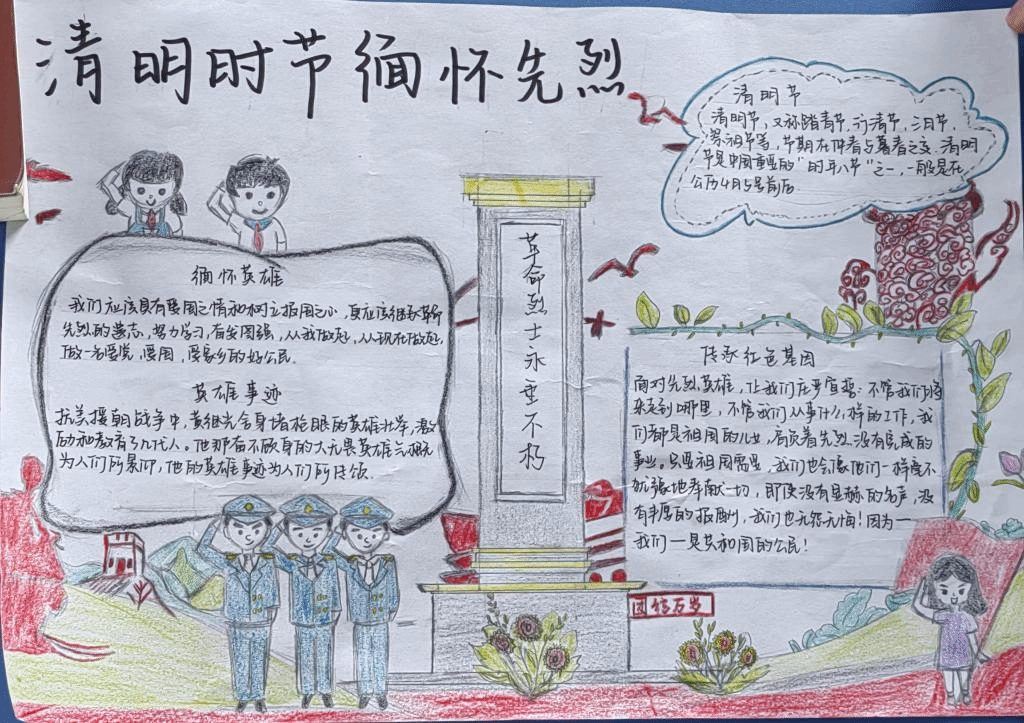 清明时节缅怀先烈
清明节
清明节，又称踏青节、行清节、三月节、
祭祖节等，节期在仲春与暮春之交。清明
节是中国重要的"四年八节"之一，一般是在
公历4月5号前后.
缅怀英雄
我们应该具有爱国之情和树立报国之心，更应该继承革命
先烈的遗志，努力学习，奋发图强，从我做起，从现在做起，
做一名爱党，爱国，爱家乡的好公民.
英雄事迹
抗美援朝战争中，黄继光舍身堵枪眼的英雄壮举，激
励和教育了几代人。他那奋不顾身的大无畏英雄气概
为人们所景仰，他的英雄事迹为人们所传颂.
革命烈士永垂不朽
传承红色基因
面对先烈英雄，让我们庄严宣誓：不管我们将
来走到哪里，不管我们从事什么样的工作，我
们都是祖国的儿女，肩负着先烈没有完成的
事业。只要祖国需要，我们也会像他们一样毫不
犹豫地奉献一切，即使没有显赫的名声，没
有丰厚的报酬，我们也无怨无悔！因为——
我们一是共和国的公民！
团结万岁